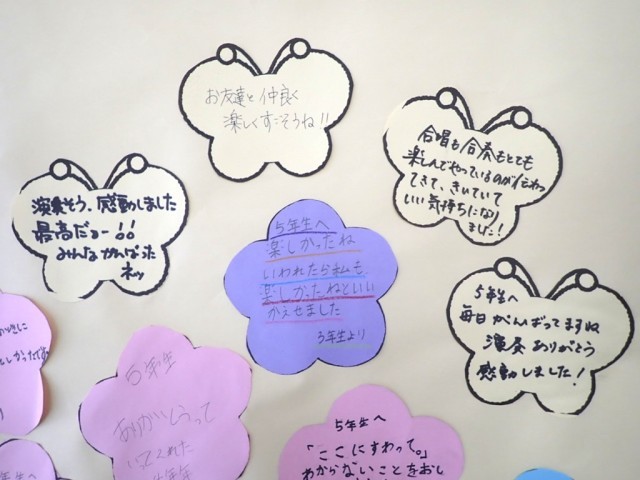 お友達と仲良く
楽しくすごそうね!!
合唱も合奏もとても
楽しんでやっているのが伝わっ
てきて、きいていて
いい気持ちになり
ました!
演奏そう、感動しました
最高だぁー!!
みんながんばった
ネッ
5年生へ
楽しかったね
いわれたら私も
楽しかったねといい
かえせました
3年生より
5年生へ
毎日がんばってますね
演奏ありがとう
感動しました!
5年生
ありがとうって
いってくれた
5年生へ
「ここにすわって。」
わからないことをおし
年生へ